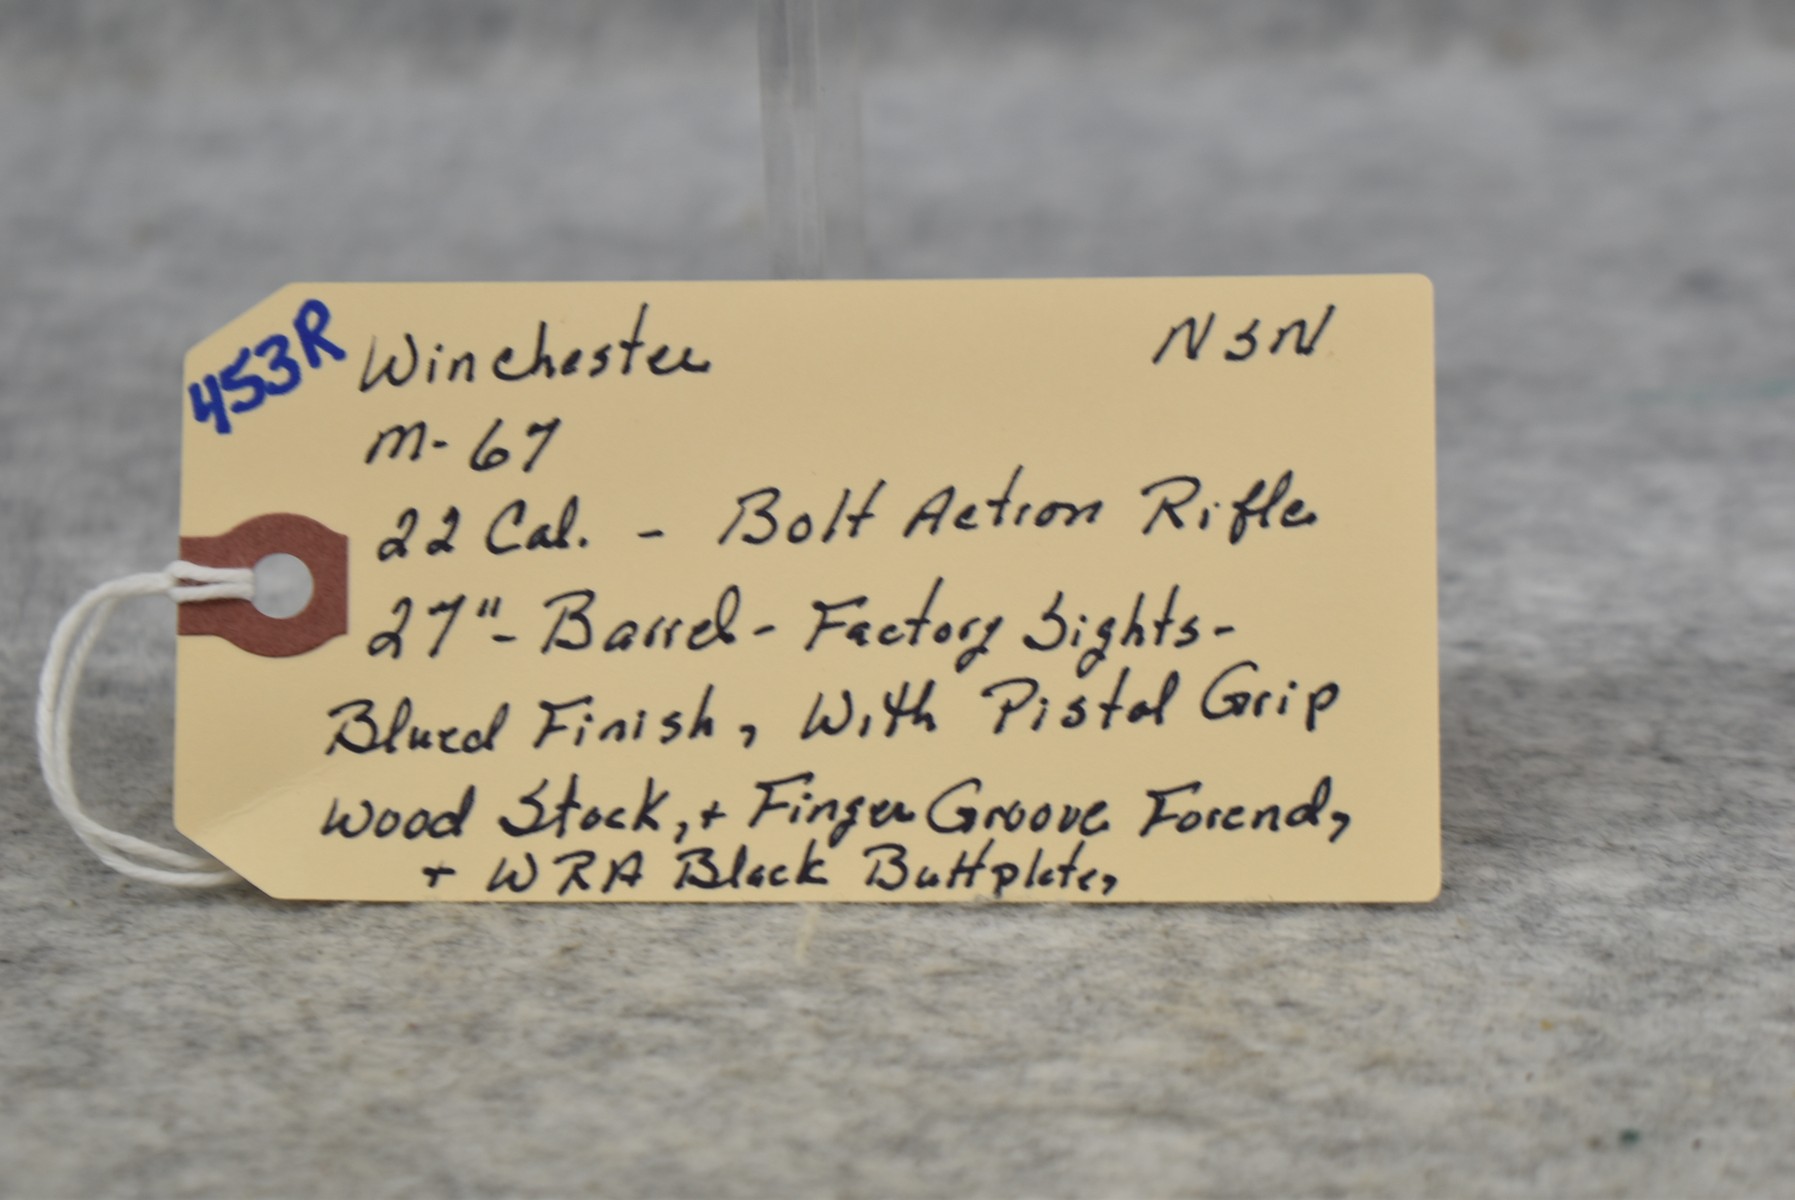 453R
Winchester NSN
M-67
22 Cal. - Bolt Action Rifle
27"- Barrel - Factory Sights -
Blued Finish, With Pistol Grip
Wood Stock, + Finger Groove Forend,
+ WRA Black Buttplate,